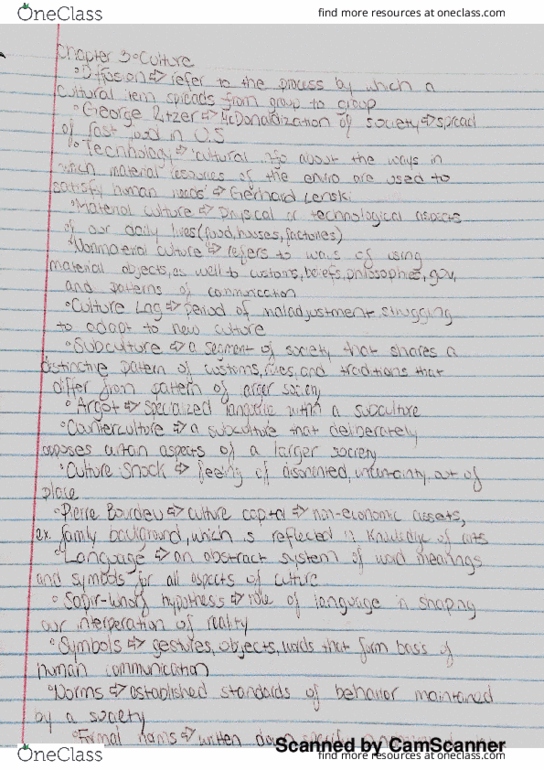 OneClass
find more resources at oneclass.com
Chapter 3 ∘ Culture
∘ Diffusion ⇨ refer to the process by which a
cultural item spreads from group to group
∘ George Ritzer ⇨ McDonaldization of society ⇨ spread
of fast food in U.S
∘ Technology ⇨ "cultural info about the ways in
which material resources of the enviro are used to
satisfy human needs" ⇨ Gerhard Lenski
∘ Material culture ⇨ physical or technological aspects
of our daily lives (food, houses, factories)
∘ Nonmaterial culture ⇨ refers to ways of using
material objects, as well to customs, beliefs, philosophies, gov,
and patterns of communication
∘ Culture Lag ⇨ period of maladjustment struggling
to adapt to new culture
∘ Subculture ⇨ a segment of society that shares a
distinctive pattern of customs, rules, and traditions that
differ from pattern of larger society
∘ Argot ⇨ specialized language within a subculture
∘ Counterculture ⇨ a subculture that deliberately
opposes certain aspects of a larger society
∘ Culture Shock ⇨ feeling of disoriented, uncertainty, out of
place
∘ Pierre Bourdeu ⇨ culture capital ⇨ non-economic assets,
ex. family background, which is reflected in knowledge of arts
∘ Language ⇨ an abstract system of word meanings
and symbols for all aspects of culture
∘ Sapir-Whorf hypothesis ⇨ role of language in shaping
our interperation of reality
∘ Symbols ⇨ gestures, objects, words that form basis of
human communication
∘ Norms ⇨ established standards of behavior maintained
by a society
∘ Formal norms ⇨ written down
Scanned by CamScanner
OneClass
find more resources at oneclass.com